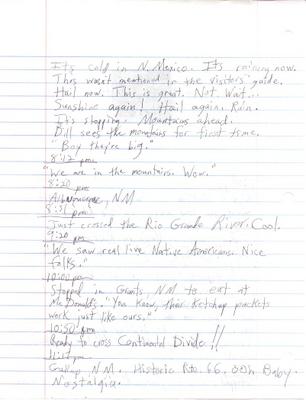 Its cold in N. Mexico. Its raining now.
This wasn't mentioned in the visitors' guide.
Hail now. This is great. Not. Wait...
Sunshine again! Hail again. Rain.
It's stopping. Mountains ahead.
Dill sees the mountains for first time.
"Boy they're big."
8:12 pm
"We are in the mountains. Wow."
8:20 pm
Albuquerque, NM
8:31 pm
Just crossed the Rio Grande River. Cool.
9:20 pm
"We saw real live Native Americans. Nice
folks."
10:00 pm
Stopped in Grants, NM to eat at
McDonald's. "You know, their ketchup packets
work just like ours."
10:50 pm
Ready to cross Continental Divide!!
11:17 pm
Gallup N.M. Historic Rte. 66. Ooh Baby.
Nostalgia.